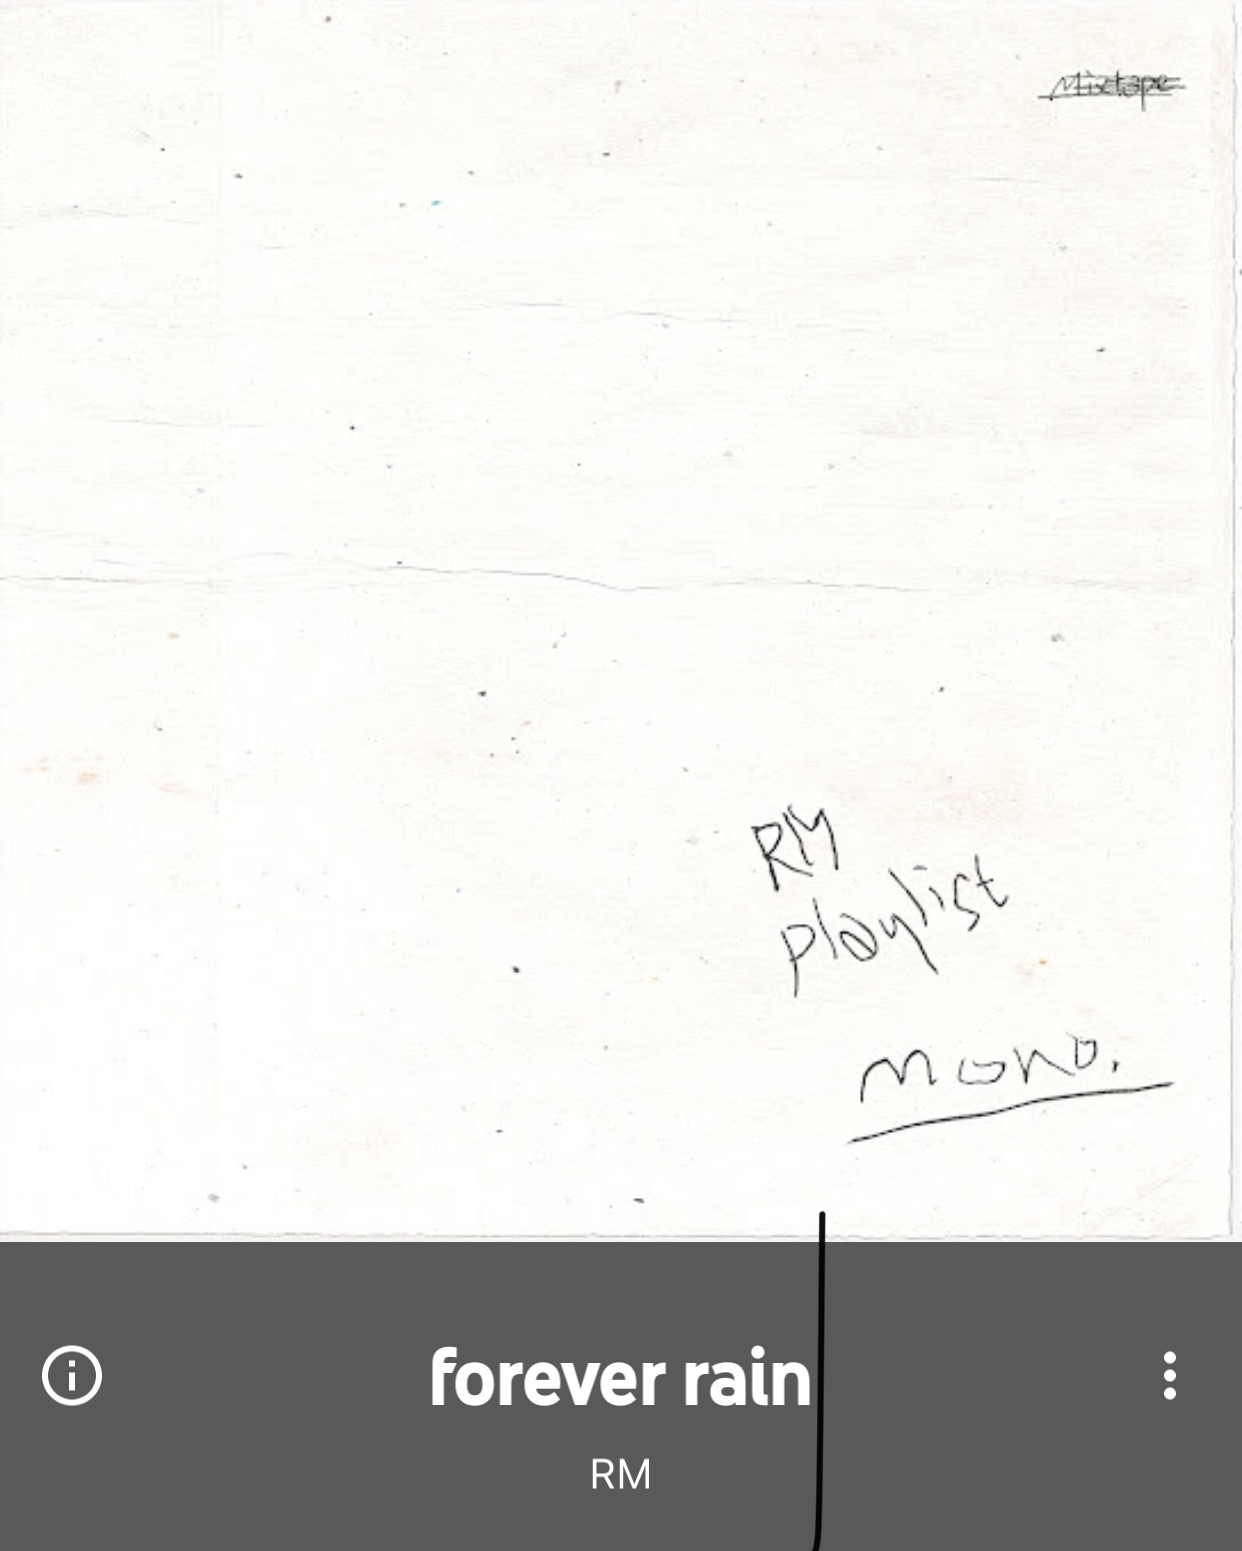 Mixtape
RM
playlist
mono.
forever rain
RM